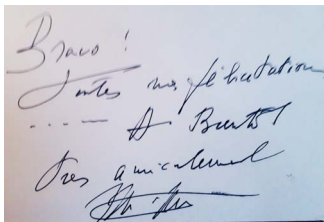 Bravo !
Toutes mes félicitations
..... A Bientôt
très amicalement